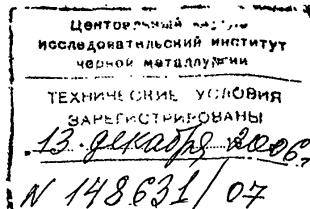 Центральный
исследовательский институт
черной металлургии
ТЕХНИЧЕСКИЕ УСЛОВИЯ
ЗАРЕГИСТРИРОВАНЫ
13. декабря 2006г
N 148631/07